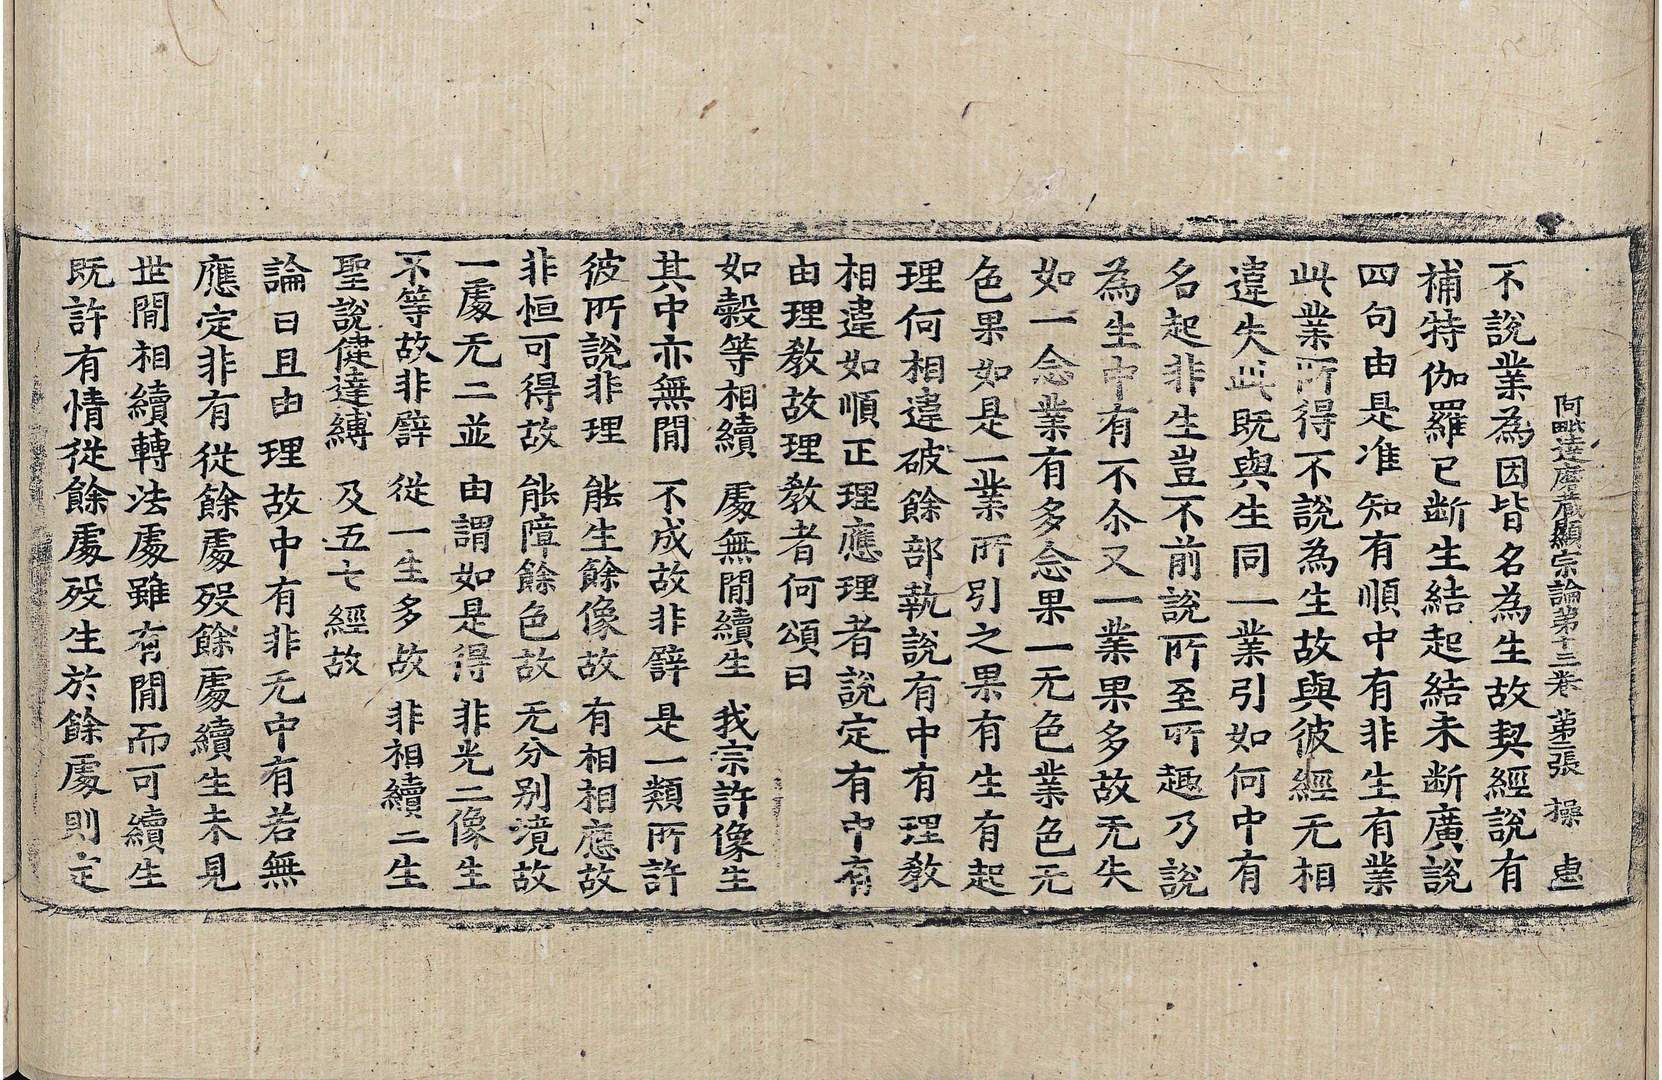 阿毗達磨藏顯宗論第十三卷 第二張 操 惠
不說業為因皆名為生故契經說有
補特伽羅已断生結起結未断廣說
四句由是准知有順中有非生有業
此業所得不說為生故與彼經无相
違失此既與生同一業引如何中有
名起非生豈不前說所至所趣乃說
為生中有不尒又一業果多故无失
如一念業有多念果一无色業色无
色果如是一業所引之果有生有起
理何相違破餘部執說有中有理教
相違如順正理應理者說定有中有
由理教故理教者何頌曰
如糓等相續 處無間續生 我宗許像生
其中亦無間 不成故非譬 是一類所許
彼所說非理 能生餘像故 有相相應故
非恒可得故 能障餘色故 无分別境故
一處无二並 由謂如是得 非光二像生
不等故非譬 從一生多故 非相續二生
聖說健達縛 及五七經故
論曰且由理故中有非无中有若無
應定非有從餘處歿餘處續生未見
世間相續轉法處雖有間而可續生
既許有情從餘處歿生於餘處則定